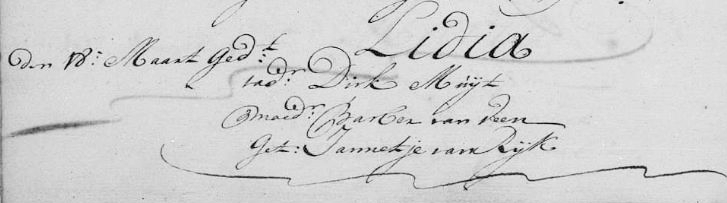 Lidia
den 18: Maart Ged:t
vad:r Dirk Muijt
moed:r Barber van Veen
Get: Jannetje van Rijk